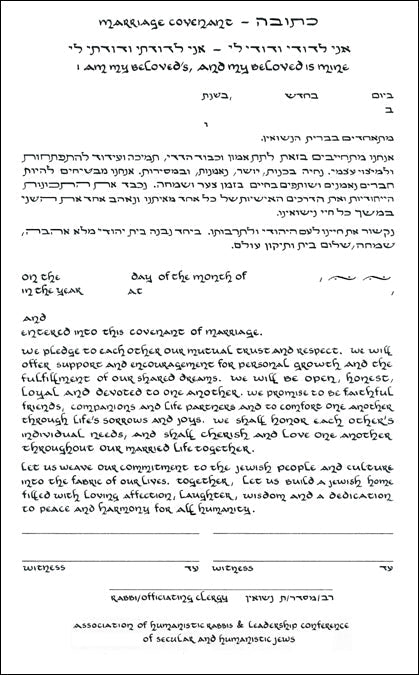 marriage covenant – כתובה
אני לדודי ודודי לי – אני לדודתי ודודתי לי
I am my beloved's, and my beloved is mine
ביום בחדש בשנת,
ב
ו
מתאחדים בברית הנשואין.
אנחנו מתחייבים בזאת לתת אמון וכבוד הדדי, תמיכה ועידוד להתפתחות
ולמיצוי עצמי. נחיה בכנות, יושר, נאמנות, ובמסירות. אנחנו מבטיחים להיות
חברים נאמנים ושותפים בחיים בזמן צער ושמחה. נכבד את התכונות
הייחודיות ואת הדרכים האישיות של כל אחד מאיתנו ונאהב אחד את השני
במשך כל חיי נישואינו.
נקשור את חיינו לעם היהודי ולתרבותו. ביחד נבנה בית יהודי מלא אהבה,
שמחה, שלום בית ותיקון עולם.
on the day of the month of ,
in the year at ,
and
entered into this covenant of marriage.
we pledge to each other our mutual trust and respect. we will
offer support and encouragement for personal growth and the
fulfillment of our shared dreams. we will be open, honest,
loyal and devoted to one another. we promise to be faithful
friends, companions and life partners and to comfort one another
through life's sorrows and joys. we shall honor each other's
individual needs, and shall cherish and love one another
throughout our married life together.
Let us weave our commitment to the jewish people and culture
into the fabric of our lives. together, let us build a jewish home
filled with loving affection, laughter, wisdom and a dedication
to peace and harmony for all humanity.
witness עד witness עד
rabbi/officiating clergy רב/מסדר/ת נשואין
association of humanistic rabbis & leadership conference
of secular and humanistic jews